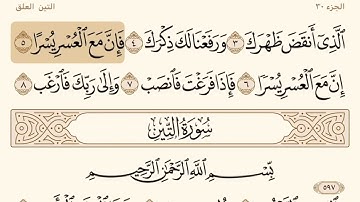 الجزء ٣٠
التين العلق
ٱلَّذِىٓ أَنقَضَ ظَهْرَكَ ٣ وَرَفَعْنَا لَكَ ذِكْرَكَ ٤ فَإِنَّ مَعَ ٱلْعُسْرِ يُسْرًا ٥
إِنَّ مَعَ ٱلْعُسْرِ يُسْرًا ٦ فَإِذَا فَرَغْتَ فَٱنصَبْ ٧ وَإِلَىٰ رَبِّكَ فَٱرْغَب ٨
سُورَةُ التِّينِ
بِسْمِ ٱللَّهِ ٱلرَّحْمَٰنِ ٱلرَّحِيمِ
٥٩٧